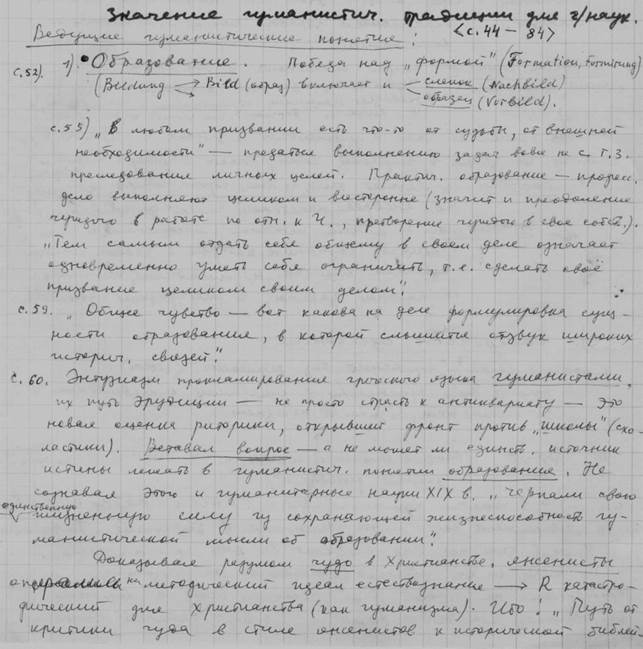 Значение гуманистич. традиции для г/наук.
Ведущие гуманистические понятие: <с. 44 – 84>
с. 52). 1) • Образование. Победа над „формой" (Formation, Formirung)
(Bildung → Bild (образ) включает и слепок (Nachbild)
образец (Vorbild).
с. 55) „В любом призвании есть что-то от судьбы, от внешней
необходимости" — предаться выполнению задач вовсе не с т. з.
преследования личных целей. Практич. образование — професс.
дело выполняют целиком и всесторонне (значит и преодоление
чуждого в работе по отн. к Ч., претворение чуждого в свое собств.).
„Тем самым отдать себя общему в своем деле означает
одновременно уметь себя ограничить, т.е. сделать своё
призвание целиком своим делом".
с. 59. „Общее чувство — вот какова на деле формулировка сущ-
ности образования, в которой слышится отзвук широких
историч. связей".
с. 60. Энтузиазм прокламирования греческого языка гуманистами,
их путь эрудиции — не просто страсть к антиквариату — это
новая оценка риторики, открывший фронт против „школы" (схо-
ластики). Вставал вопрос — а не может ли единств. источник
истины лежать в гуманистич. понятии образование. Не
сознавая этого и гуманитарные науки XIX в. „черпали свою
единственную жизненную силу из сохраняющей жизнеспособность гу-
манистической мысли об образовании".
Доказывая разумом чудо в Христианстве, янсенисты
на методический идеал естествознание → R катастро-
фический для Христианства (как гуманизма). Ибо! „Путь от
критики чуда в стиле янсенистов к исторической библей-